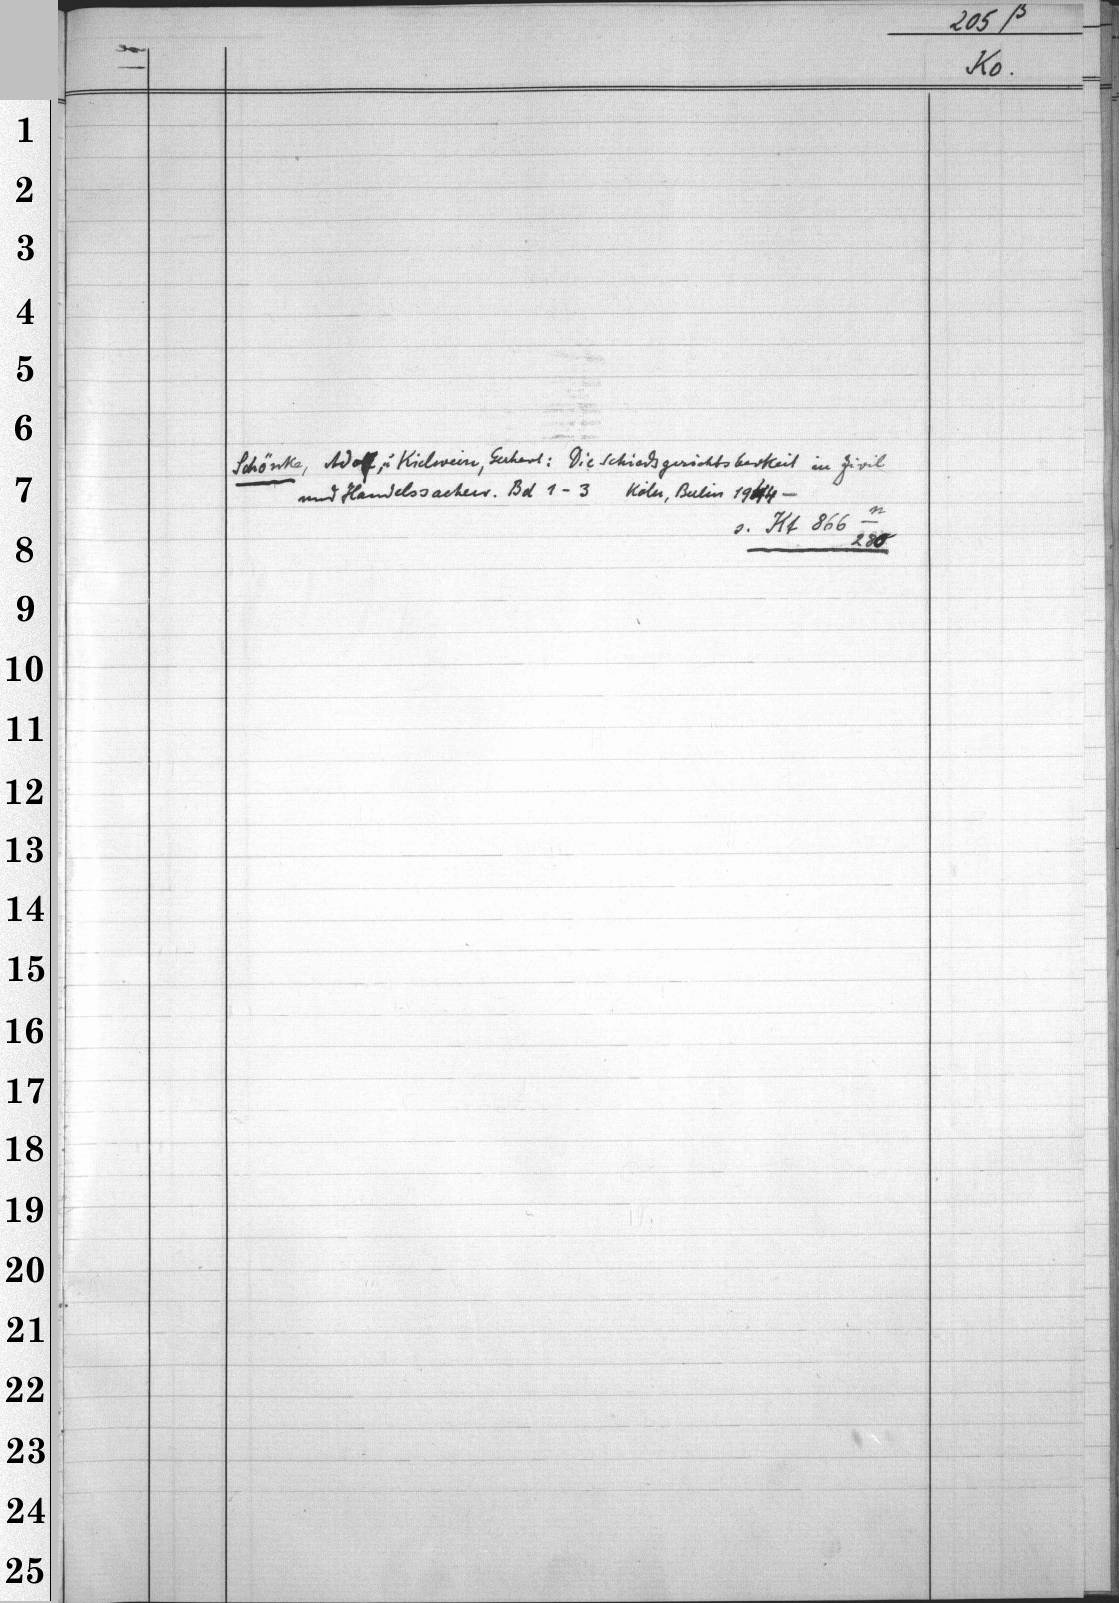 205 β
Ko.
1
2
3
4
5
6
Schönke, Adolf, u. Kielwein, Gerhart: Die Schiedsgerichtsbarkeit in Zivil
7
und Handelssachen. Bd 1-3 Köln, Berlin 1944 —
s. Kf 866 n
280
8
9
10
11
12
13
14
15
16
17
18
19
20
21
22
23
24
25